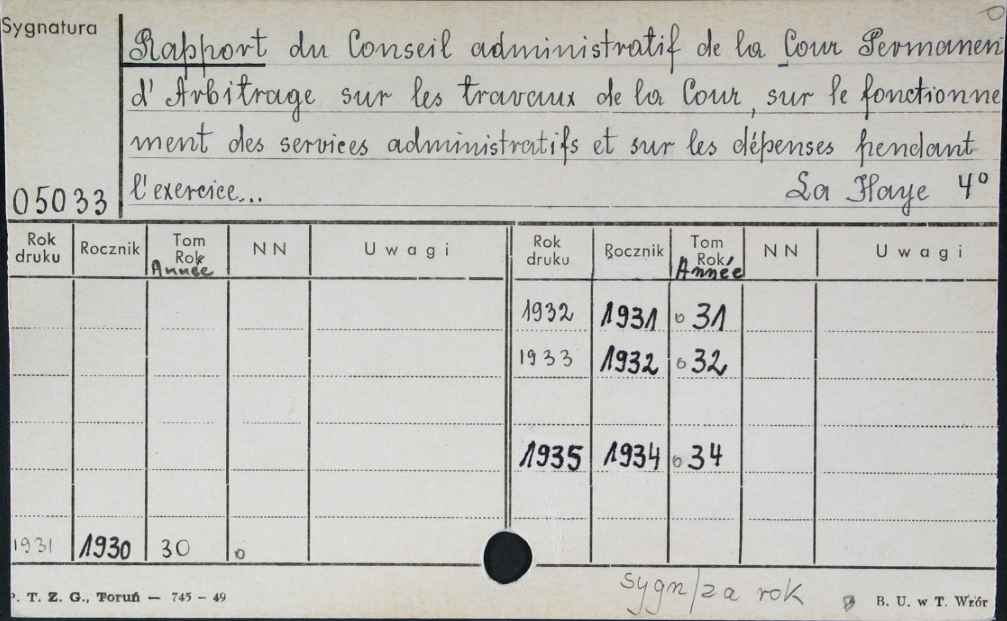 Sygnatura
Rapport du Conseil administratif de la Cour Permanen
d'Arbitrage sur les travaux de la Cour, sur le fonctionne
ment des services administratifs et sur les dépenses pendant
05033 l'exercice... La Haye 4°
Rok druku Rocznik Tom Rok Année NN Uwagi Rok druku Rocznik Tom Rok Année NN Uwagi
1932 1931 o 31
1933 1932 o 32
1935 1934 o 34
1931 1930 30 o
sygn/za rok
P. T. Z. G., Toruń — 745 – 49 B. U. w T. Wzór